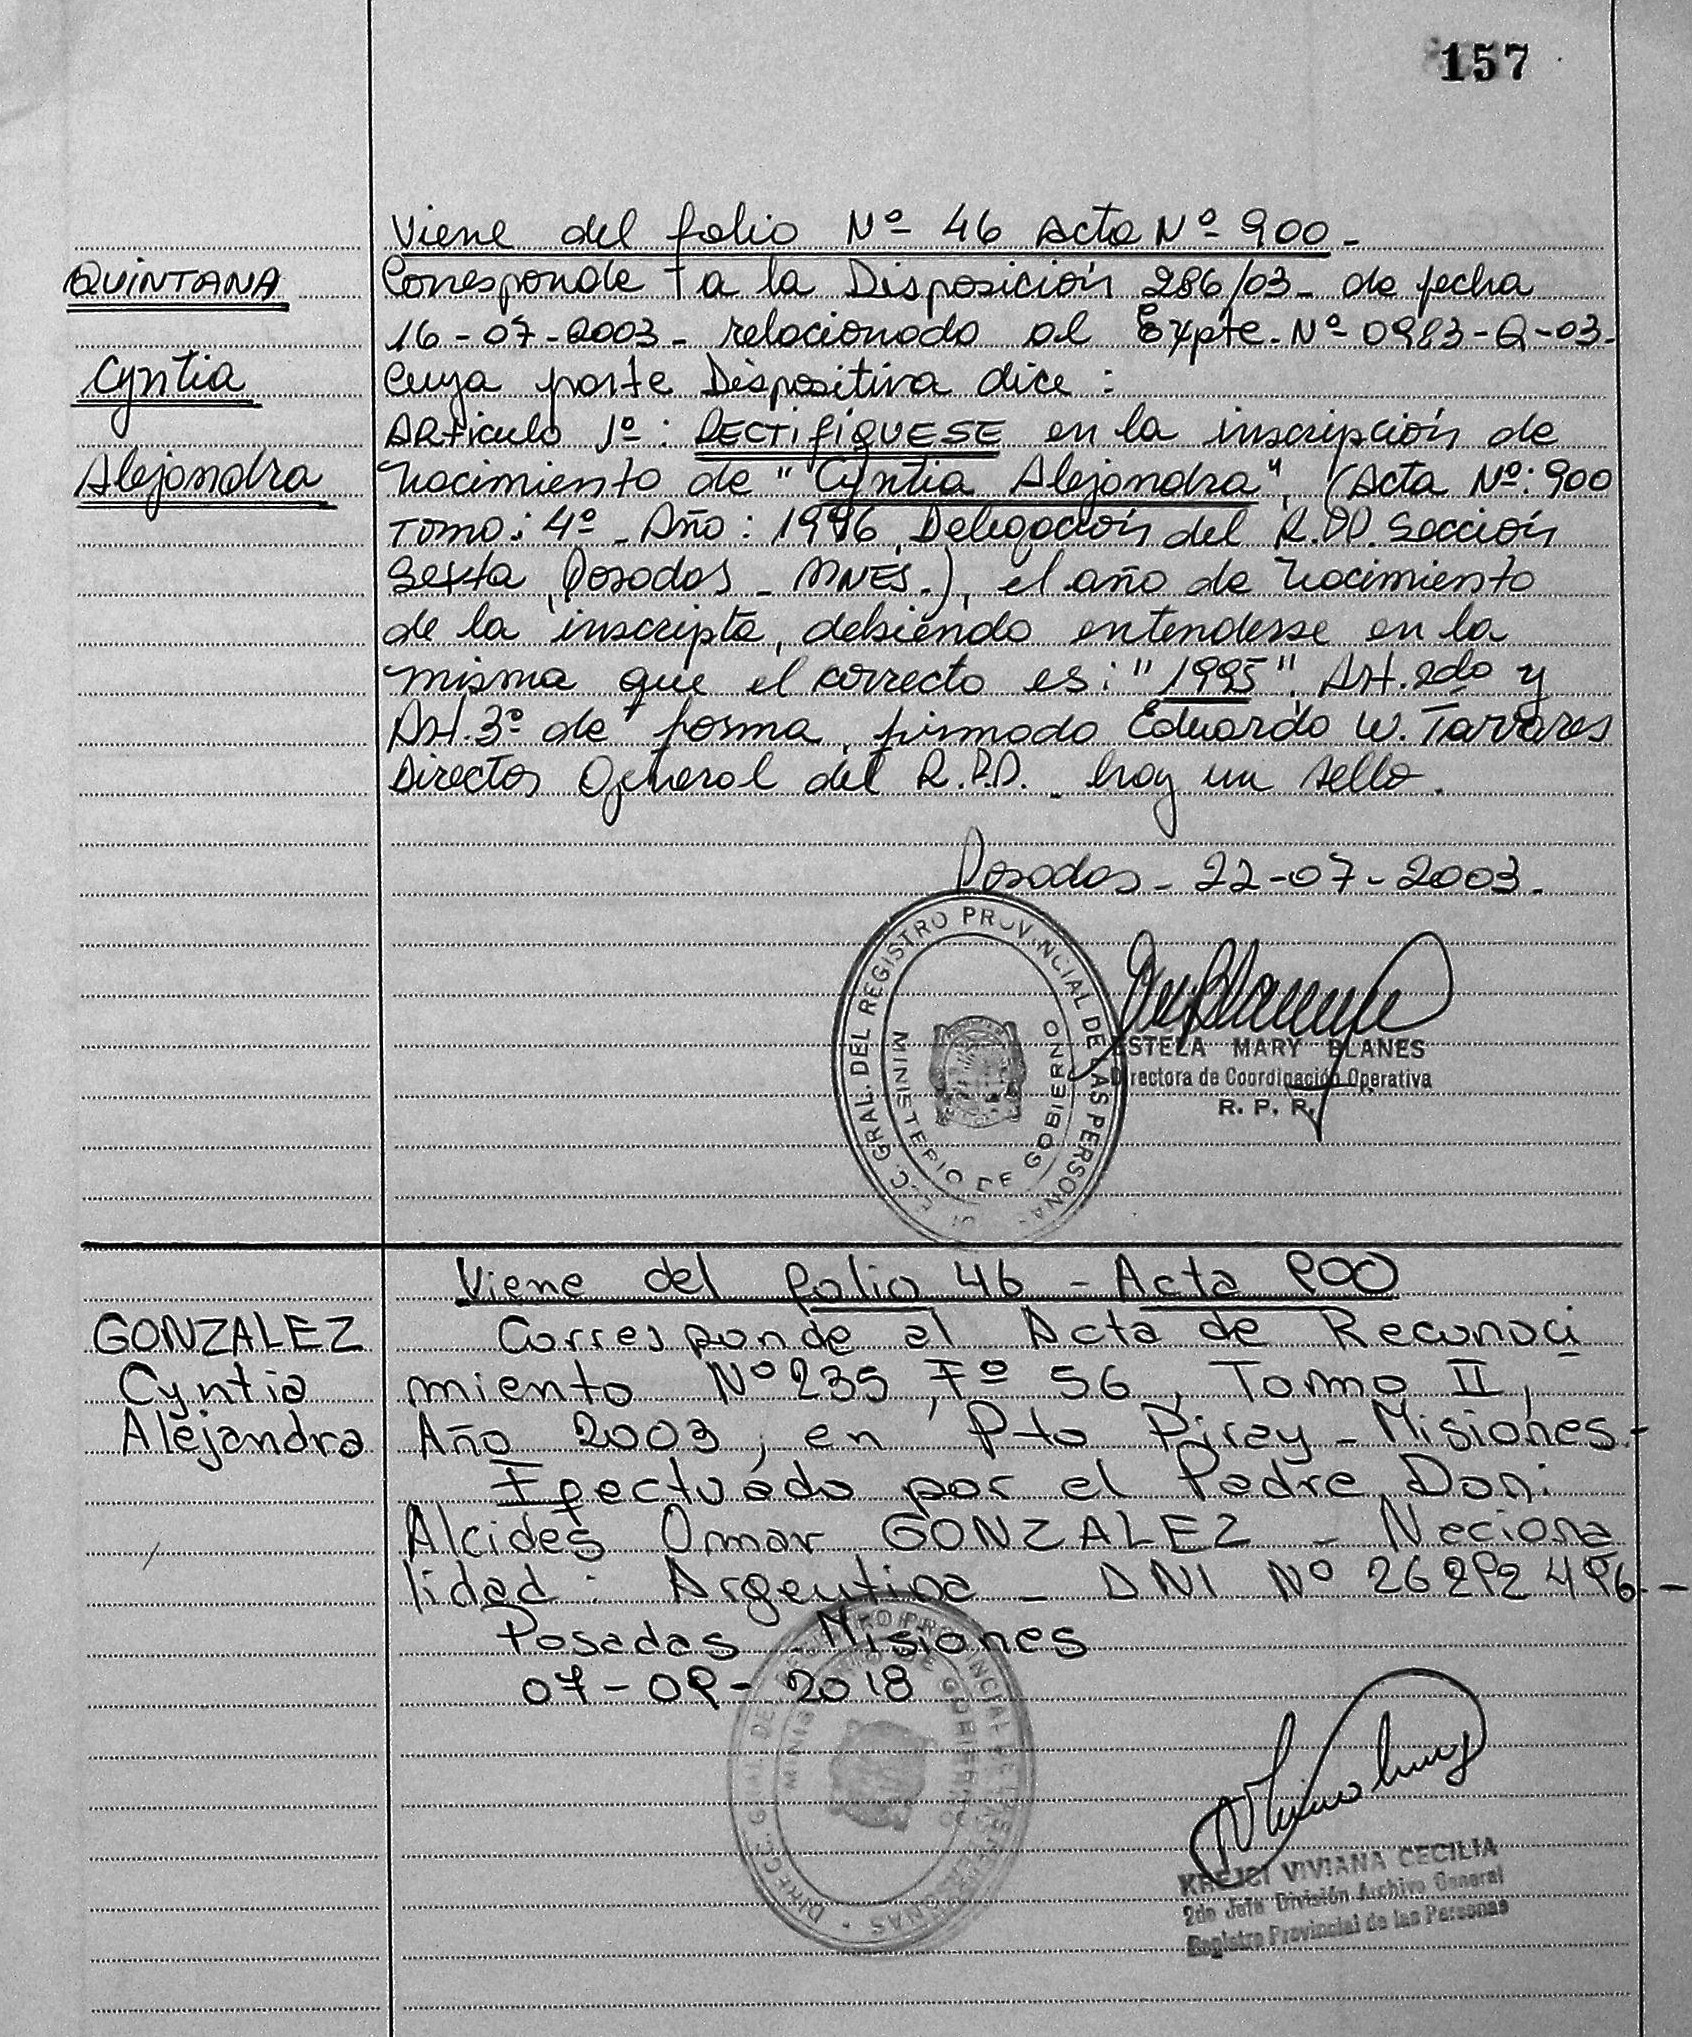 157
Viene del folio Nº 46 Acta Nº 900.-
QUINTANA
Corresponde a la Disposición 286/03- de fecha
16-07-2003- relacionado al Expte. Nº 0983-Q-03-
Cyntia
Cuya parte Dispositiva dice:
Artículo 1º: RECTIFÍQUESE en la inscripción de
Alejandra
nacimiento de "Cyntia Alejandra", (Acta Nº: 900
Tomo: 4º- Año: 1996, Delegación del R.PP. Sección
Sexta, Posadas - MNES.), el año de nacimiento
de la inscripta, debiendo entenderse en la
misma que el correcto es: "1995". Art. 2do y
Art. 3º de forma, firmado Eduardo W. Tavares
Director General del R.P.P. - hay un sello.
Posadas - 22-07-2003.
GRAL. DEL REGISTRO PROVINCIAL DE LAS PERSONAS
MINISTERIO DE GOBIERNO
ESTELA MARY BLANES
Directora de Coordinación Operativa
R. P. P.
Viene del folio 46 - Acta 900
GONZALEZ
Corresponde al Acta de Reconoci
Cyntia
miento Nº 235, Fº 56, Tomo II,
Alejandra
Año 2003, en Pto Piray - Misiones.-
Efectuado por el Padre, Don:
Alcides Omar GONZALEZ - Naciona
lidad: Argentina - DNI Nº 26292496.-
Posadas - Misiones
07-09-2018
DIRECC. GRAL. DEL REGISTRO PROVINCIAL DE LAS PERSONAS
MINISTERIO DE GOBIERNO
KREJCI VIVIANA CECILIA
2do Jefe División Archivo General
Registro Provincial de las Personas